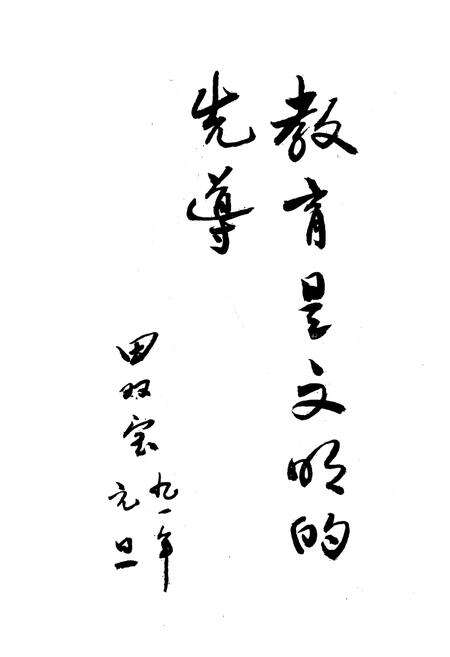 教育是文明的
先导
田双宝
九一年
元旦